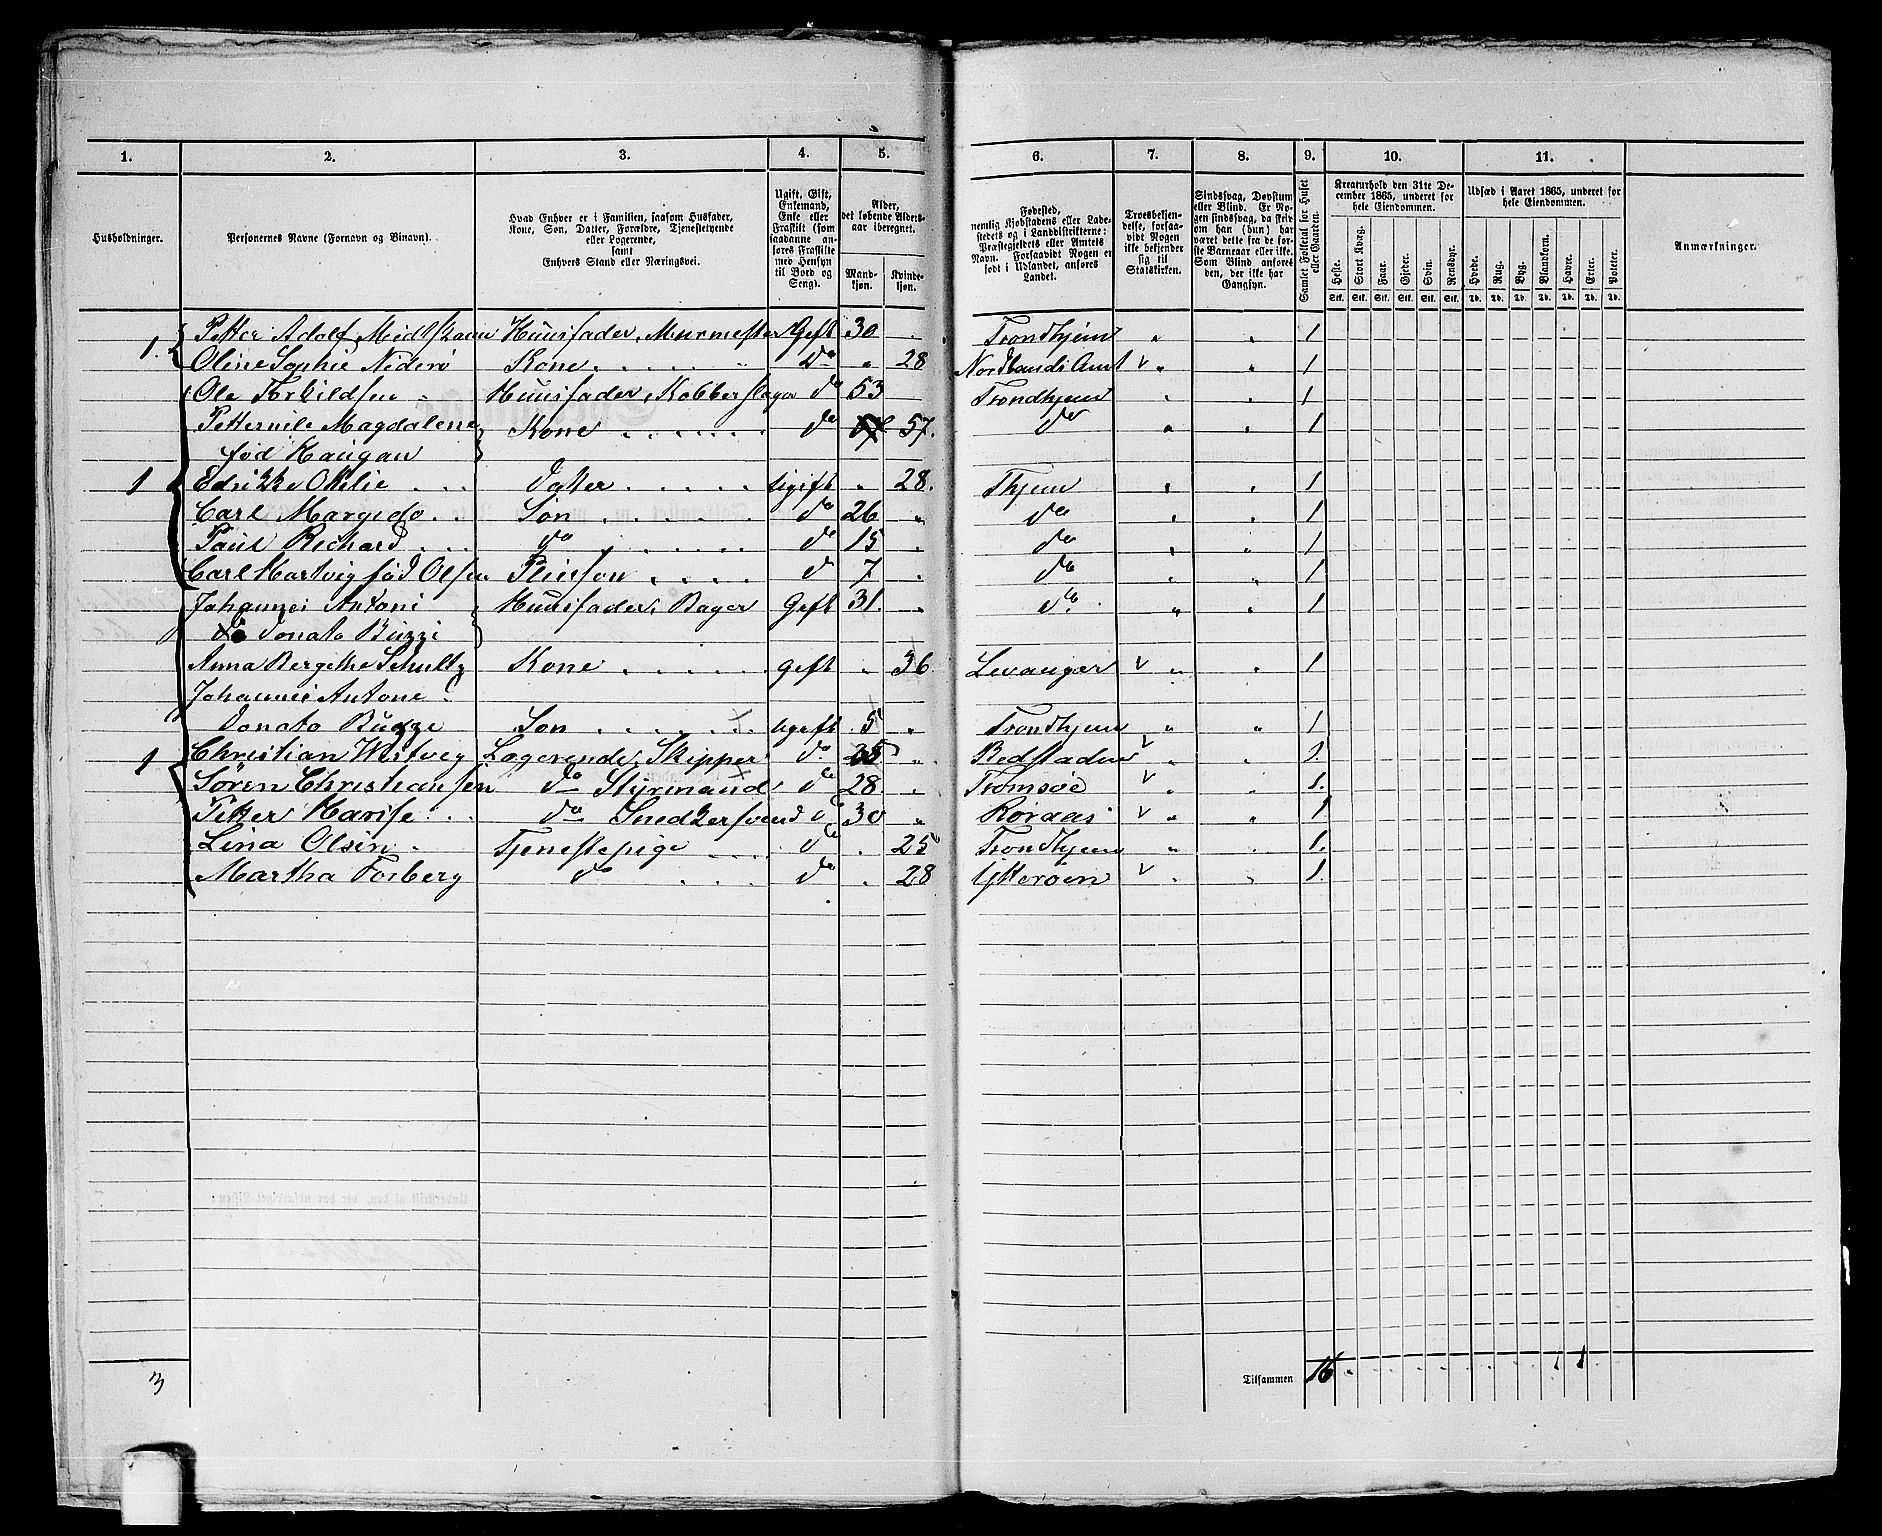 1. 2. 3. 4. 5. 6. 7. 8. 9. 10. 11.
Husholdninger.
Personernes Navne (Fornavn og Binavn).
Hvad Enhver er i Familien, saasom Husfader,
Kone, Søn, Datter, Forældre, Tjenestetyende
eller Logerende,
samt
Enhvers Stand eller Næringsvei.
Ugift, Gift,
Enkemand,
Enke eller
Fraskilt (som
saadanne an-
føres Fraskilte
med Hensyn
til Bord og
Seng).
Alder,
det løbende Alders-
aar iberegnet.
Mand-
kjøn.
Kvinde-
kjøn.
Fødested,
nemlig Kjøbstadens eller Lade-
stedets og i Landdistrikterne:
Præstegjeldets eller Amtets
Navn. Forsaavidt Nogen er
født i Udlandet, anføres
Landet.
Troesbekjen-
delse, forsaa-
vidt Nogen
ikke bekjender
sig til
Statskirken.
Sindssvag, Døvstum
eller Blind. Er No-
gen sindssvag, da skriv
om han (hun) har
været dette fra de før-
ste Barneaar eller ikke.
Som Blind anføres
den, der ikke har
Gangsyn.
Samlet Folketal for Huset
eller Gaarden.
Kreaturhold den 31te De-
cember 1865, underet for
hele Eiendommen.
Heste. Stort Kvæg. Faar. Gjeder. Svin. Rensdyr.
Stk. Stk. Stk. Stk. Stk. Stk.
Udsæd i Aaret 1865, underet for
hele Eiendommen.
Hvede. Rug. Byg. Blankorn. Havre. Erter. Poteter.
Td. Td. Td. Td. Td. Td. Td.
Anmærkninger.
1. Petter Adolf Husfader, Murmester Gift 30 Trondhjem 1
Oline Sophie Niderö Kone do 28 Nordlands Amt v 1
Ole Torkildsen Huusfader, Kobberslager do 53 Trondhjem 1
Petternile Magdalene Kone do 57. do 1
fød Haugan
1 Edrikke Otilie Datter Ugift 28. Thjem 1
Carl Margido Søn do 26 do 1
Paul Richard do do 15 do 1
Carl Hartvig fød Olsen Pleiesøn do 7 do 1
Johannes Antoni Huusfader, Bager Gift 31. do 1
Donato Buzzi
Anna Bergithe Schultz Kone Gift 36. Levanger v 1
Johannes Antone
Donato Buzze Søn Ugift 5 Trondhjem 1
1 Christian Westvig Logerende, Skipper do 35 v 1
Søren Christiansen do Styrmand do 28. Tromsøe v 1.
Petter do Snedkersvend do 30 Røraas v 1
Lina Olsen Tjenestepige do 25 Trondhjem 1.
Martha Forberg do do 28 Ytterøen v 1.
3
Tilsammen 16